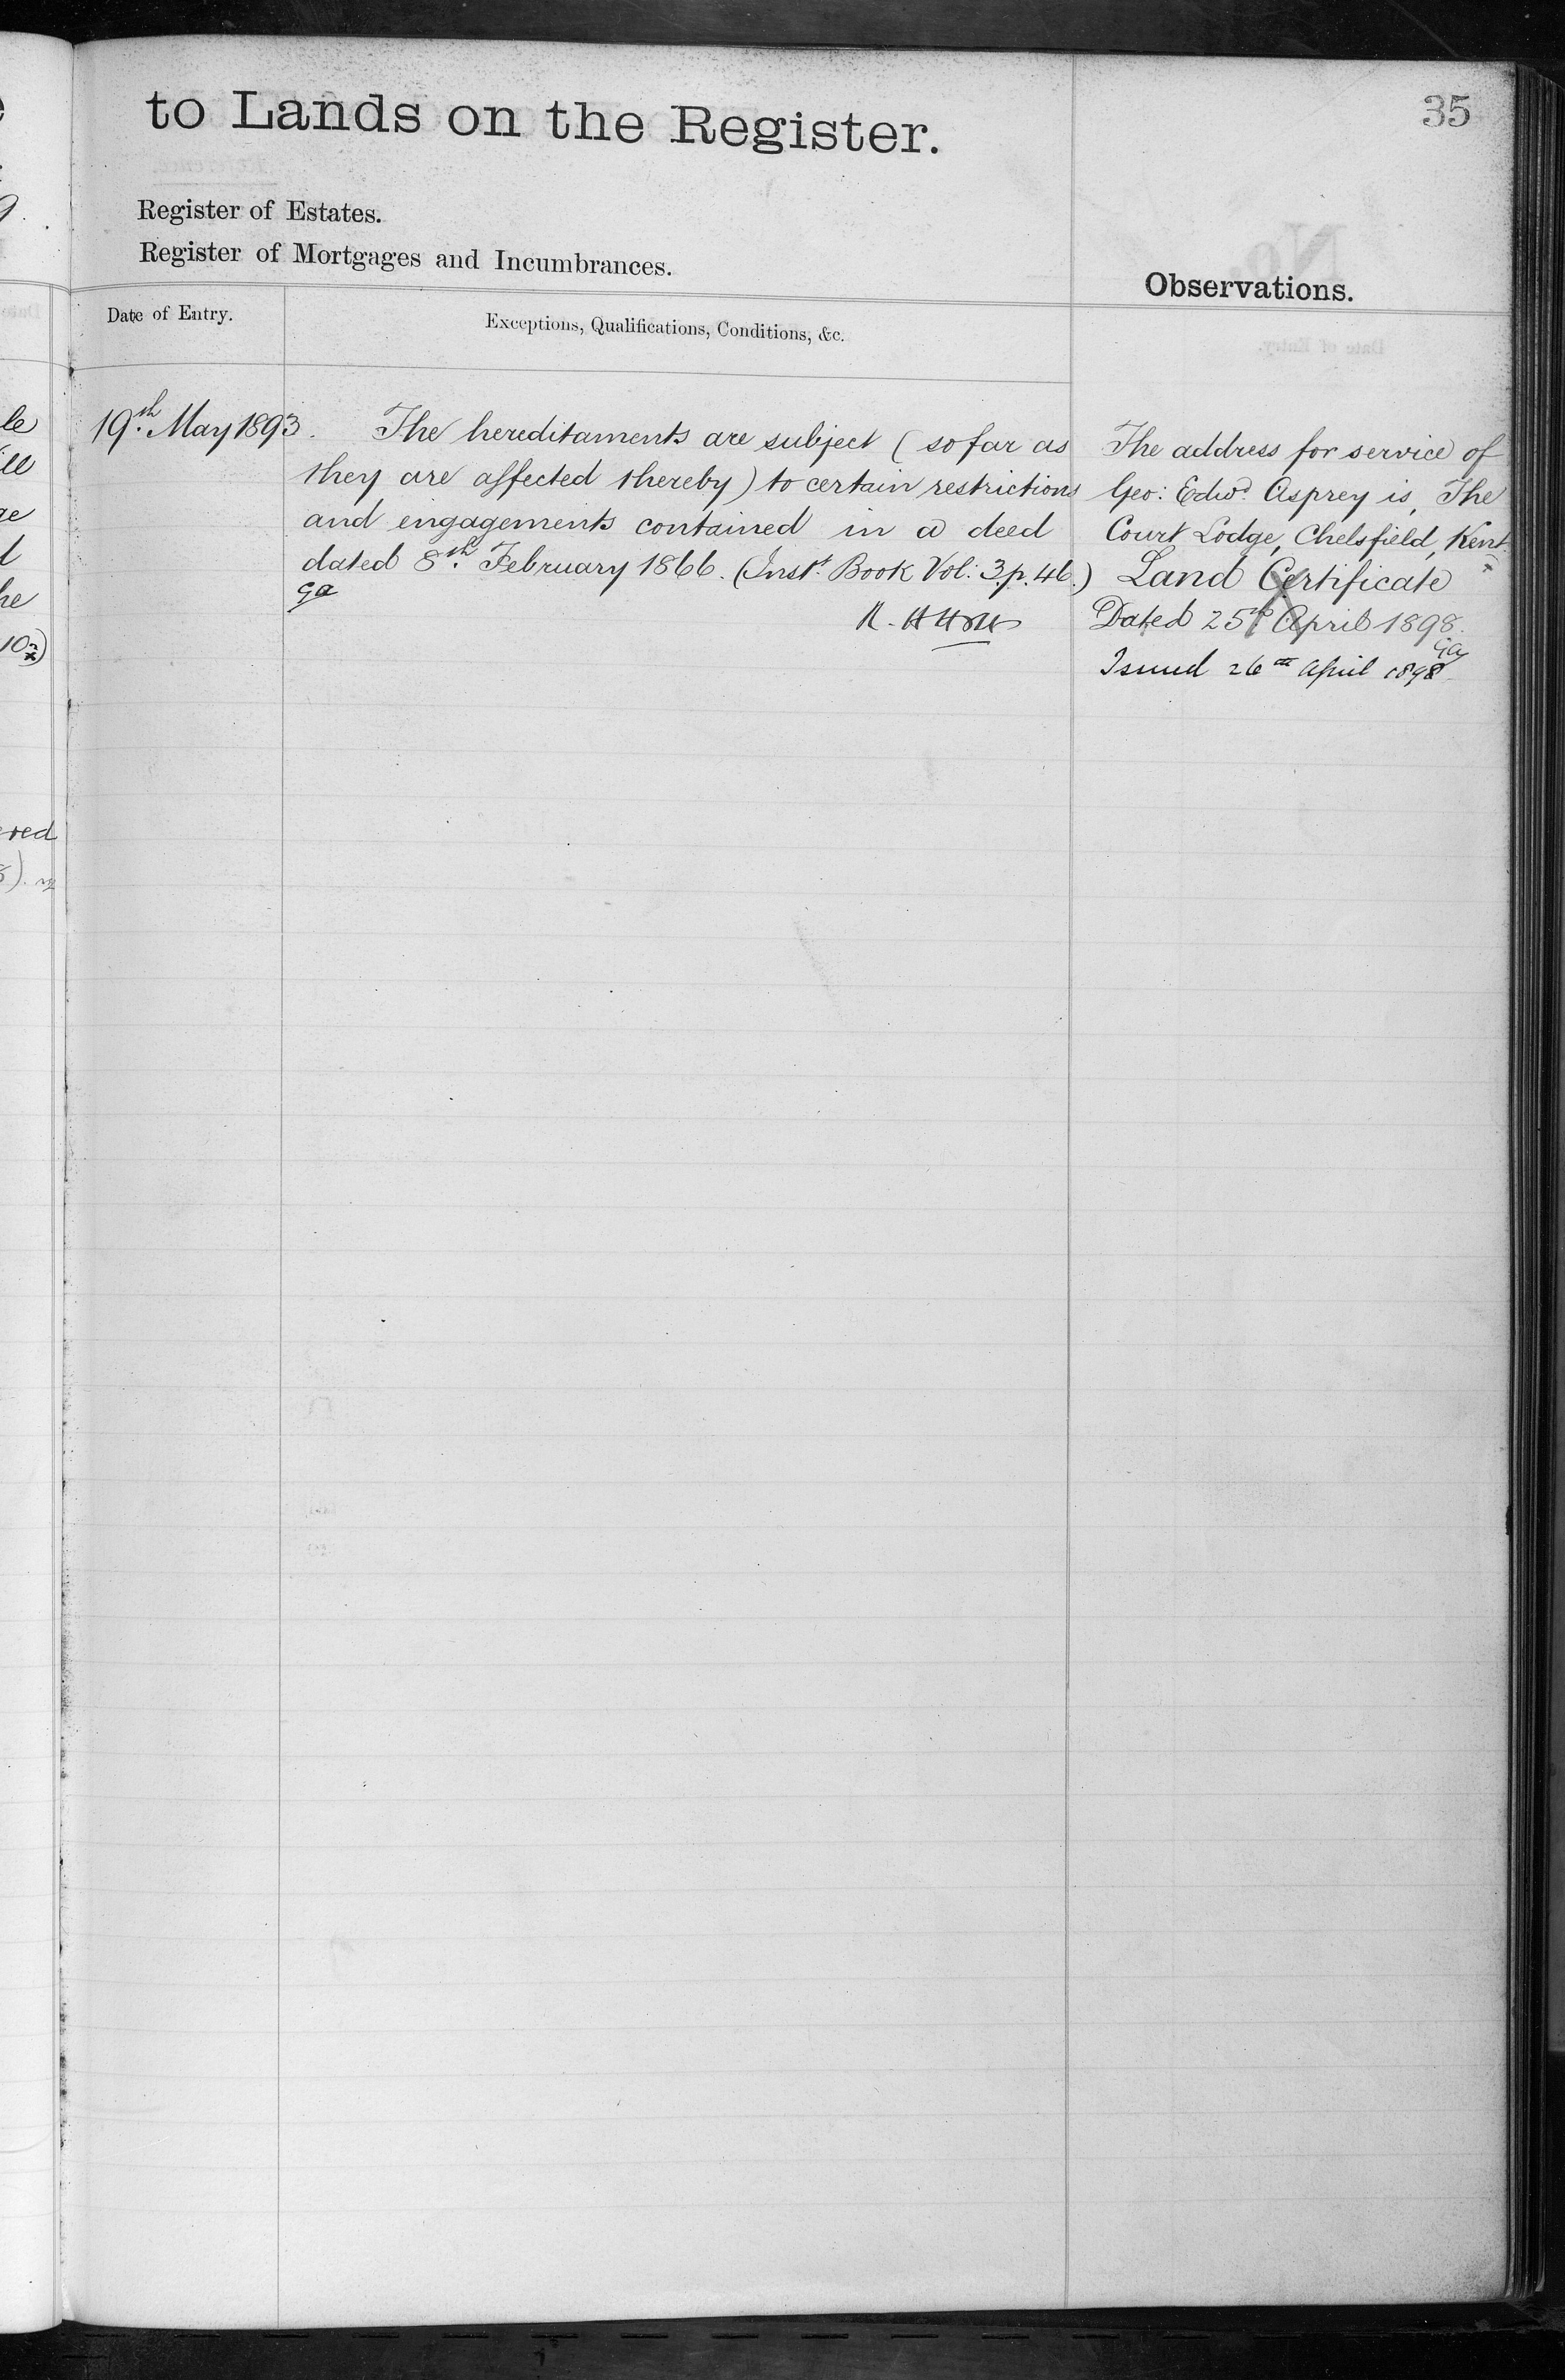 to Lands on the Register.
35
Register of Estates.
Register of Mortgages and Incumbrances.
Observations.
Date of Entry.
Exceptions, Qualifications, Conditions, &c.
19th. May 1893.
The hereditaments are subject (so far as
they are affected thereby) to certain restrictions
and engagements contained in a deed
dated 8th. February 1866. (Inst. Book Vol: 3. p. 46.)
ga
The address for service of
Geo: Edwd. Asprey is, The
Court Lodge, Chelsfield, Kent.
Land Certificate
Dated 25th April 1898.
Issued 26th April 1898
le
ill
ge
he
ered